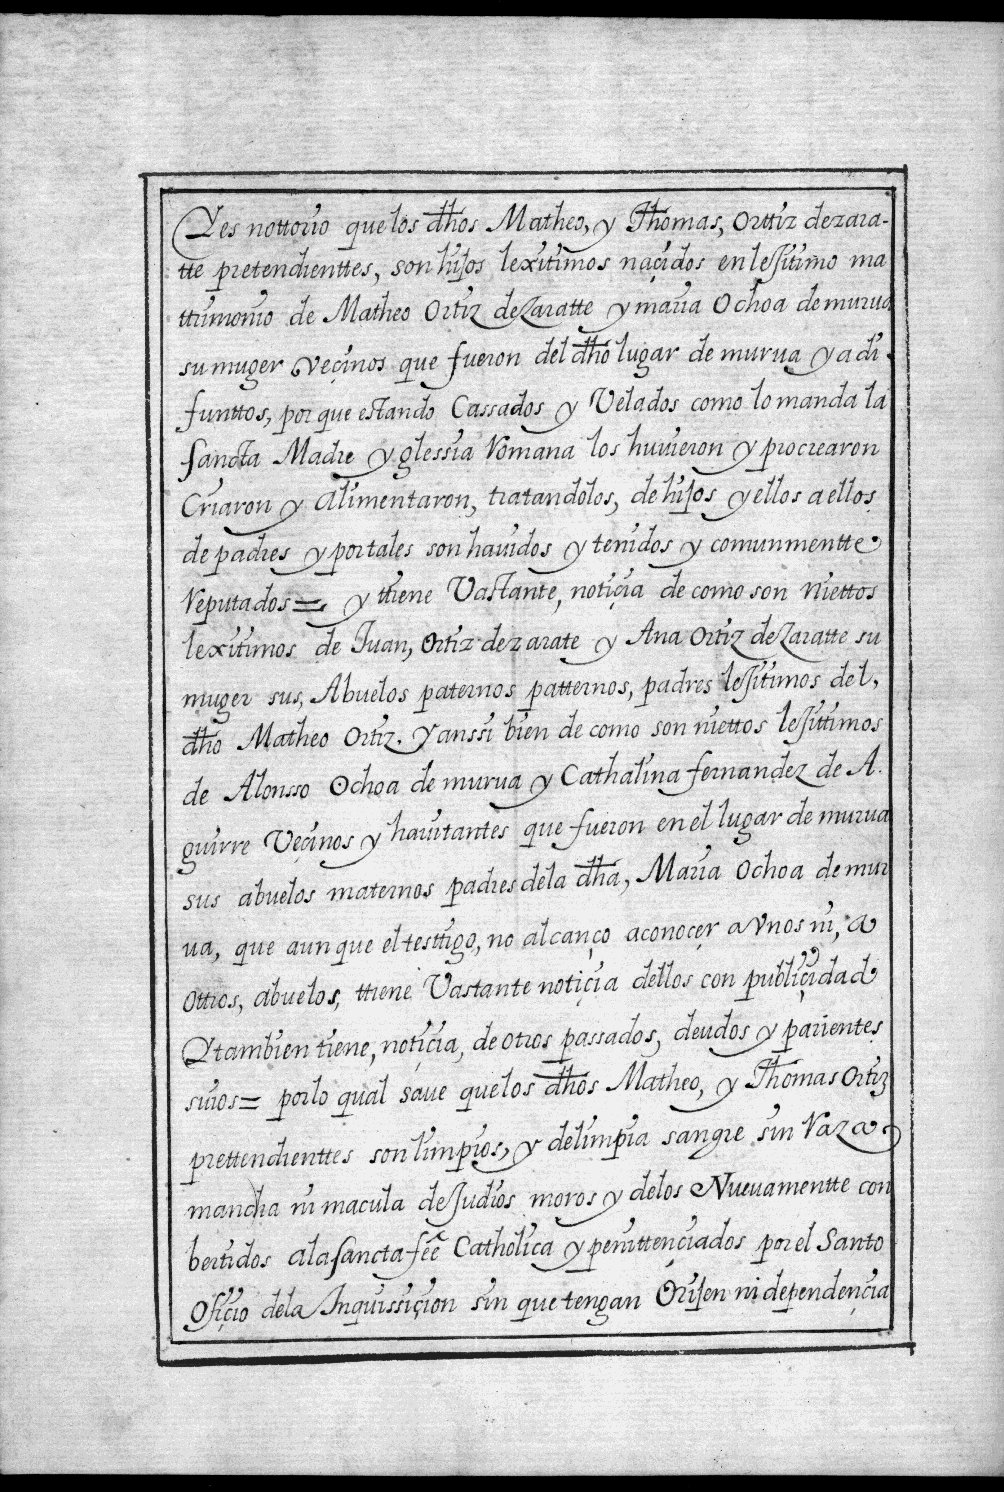 Y es nottorio que los dhos Matheo, y Thomas, Orttiz de zara-
tte pretendienttes, son hijos lexitimos naçidos en lejitimo ma
ttrimonio de Matheo Ortiz de Zaratte y maria Ochoa de murua
su muger veçinos que fueron del dho lugar de murua y a di
funttos, por que estando Cassados y Velados como lo manda la
sancta Madre yglessia Romana los huvieron y procrearon
Criaron y alimentaron, tratandolos, de hijos y ellos a ellos
de padres y por tales son havidos y tenidos y comunmentte
Reputados= y ttiene Vastante, notiçia de como son niettos
lexitimos de Juan, Ortiz de zarate y Ana Ortiz de Zaratte su
muger sus, Abuelos paternos patternos, padres lejitimos del,
dho Matheo Ortiz. Y anssi bien de como son niettos lejittimos
de Alonsso Ochoa de murua y Cathalina fernandez de A.
guirre Veçinos y havitantes que fueron en el lugar de murua
sus abuelos maternos padres de la dha, Maria Ochoa de mur
ua, que aunque el testtigo, no alcanço a conoçer a vnos ni, a
ottros, abuelos, ttiene Vastante notiçia dellos con publiçidad
Y tambien tiene, notiçia, de otros passados, deudos y parientes
suios= por lo qual saue que los dhos Matheo, y Thomas Ortiz
prettendienttes son limpios, y de limpia sangre sin Raza
mancha ni macula de Judios moros y de los Nueuamentte con
bertidos a la sancta fee Catholica y penittençiados por el Santo
Ofiçio de la Inquissiçion sin que tengan Orijen ni dependençia